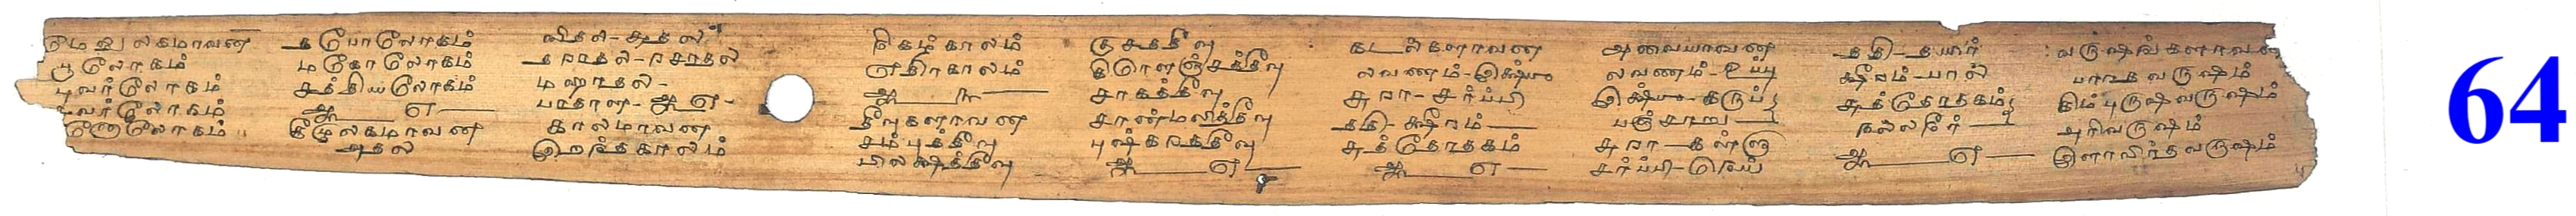 மேலுலகமாவன
பூலோகம்
புவர்லோகம்
சுவர்லோகம்
சனலோகம்
தபோலோகம்
மகோலோகம்
சத்தியலோகம்
ஆ — ௭ —
கீழுலகமாவன
அதல
விதல - சுதல
தராதல - ரசாதல
மஹாதல -
பாதாள - ஆ ௭ -
காலமாவன
இறந்தகாலம்
நிகழ்காலம்
எதிர்காலம்
ஆ — ௩ —
தீவுகளாவன
சம்புத்தீவு
பிலக்ஷத்தீவு
குசத்தீவு
கிரௌஞ்சத்தீவு
சாகத்தீவு
சான்மலித்தீவு
புஷ்கரத்தீவு
ஆ — ௭ —
கடல்களாவன
லவணம் - இக்ஷு
சுரா - சர்ப்பி
ததி - க்ஷீரம் —
சுத்தோதகம்
ஆ — ௭ —
அவையாவன
லவணம் - உப்பு
இக்ஷு - கருப்
பஞ்சாறு —
சுரா — கள்ளு
சர்ப்பி - நெய்
ததி - தயிர்
க்ஷீரம் - பால்
சுத்தோதகம்
நல்லநீர் —
ஆ — ௭ —
வருஷங்களாவன
பாரதவருஷம்
கிம்புருஷவருஷம்
அரிவருஷம்
இளாவிர்தவருஷம்
64